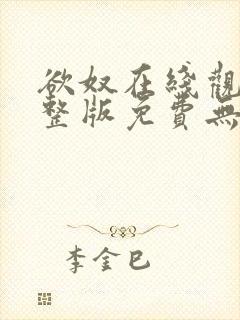 欲奴在綫觀
整版免費無
李金巳